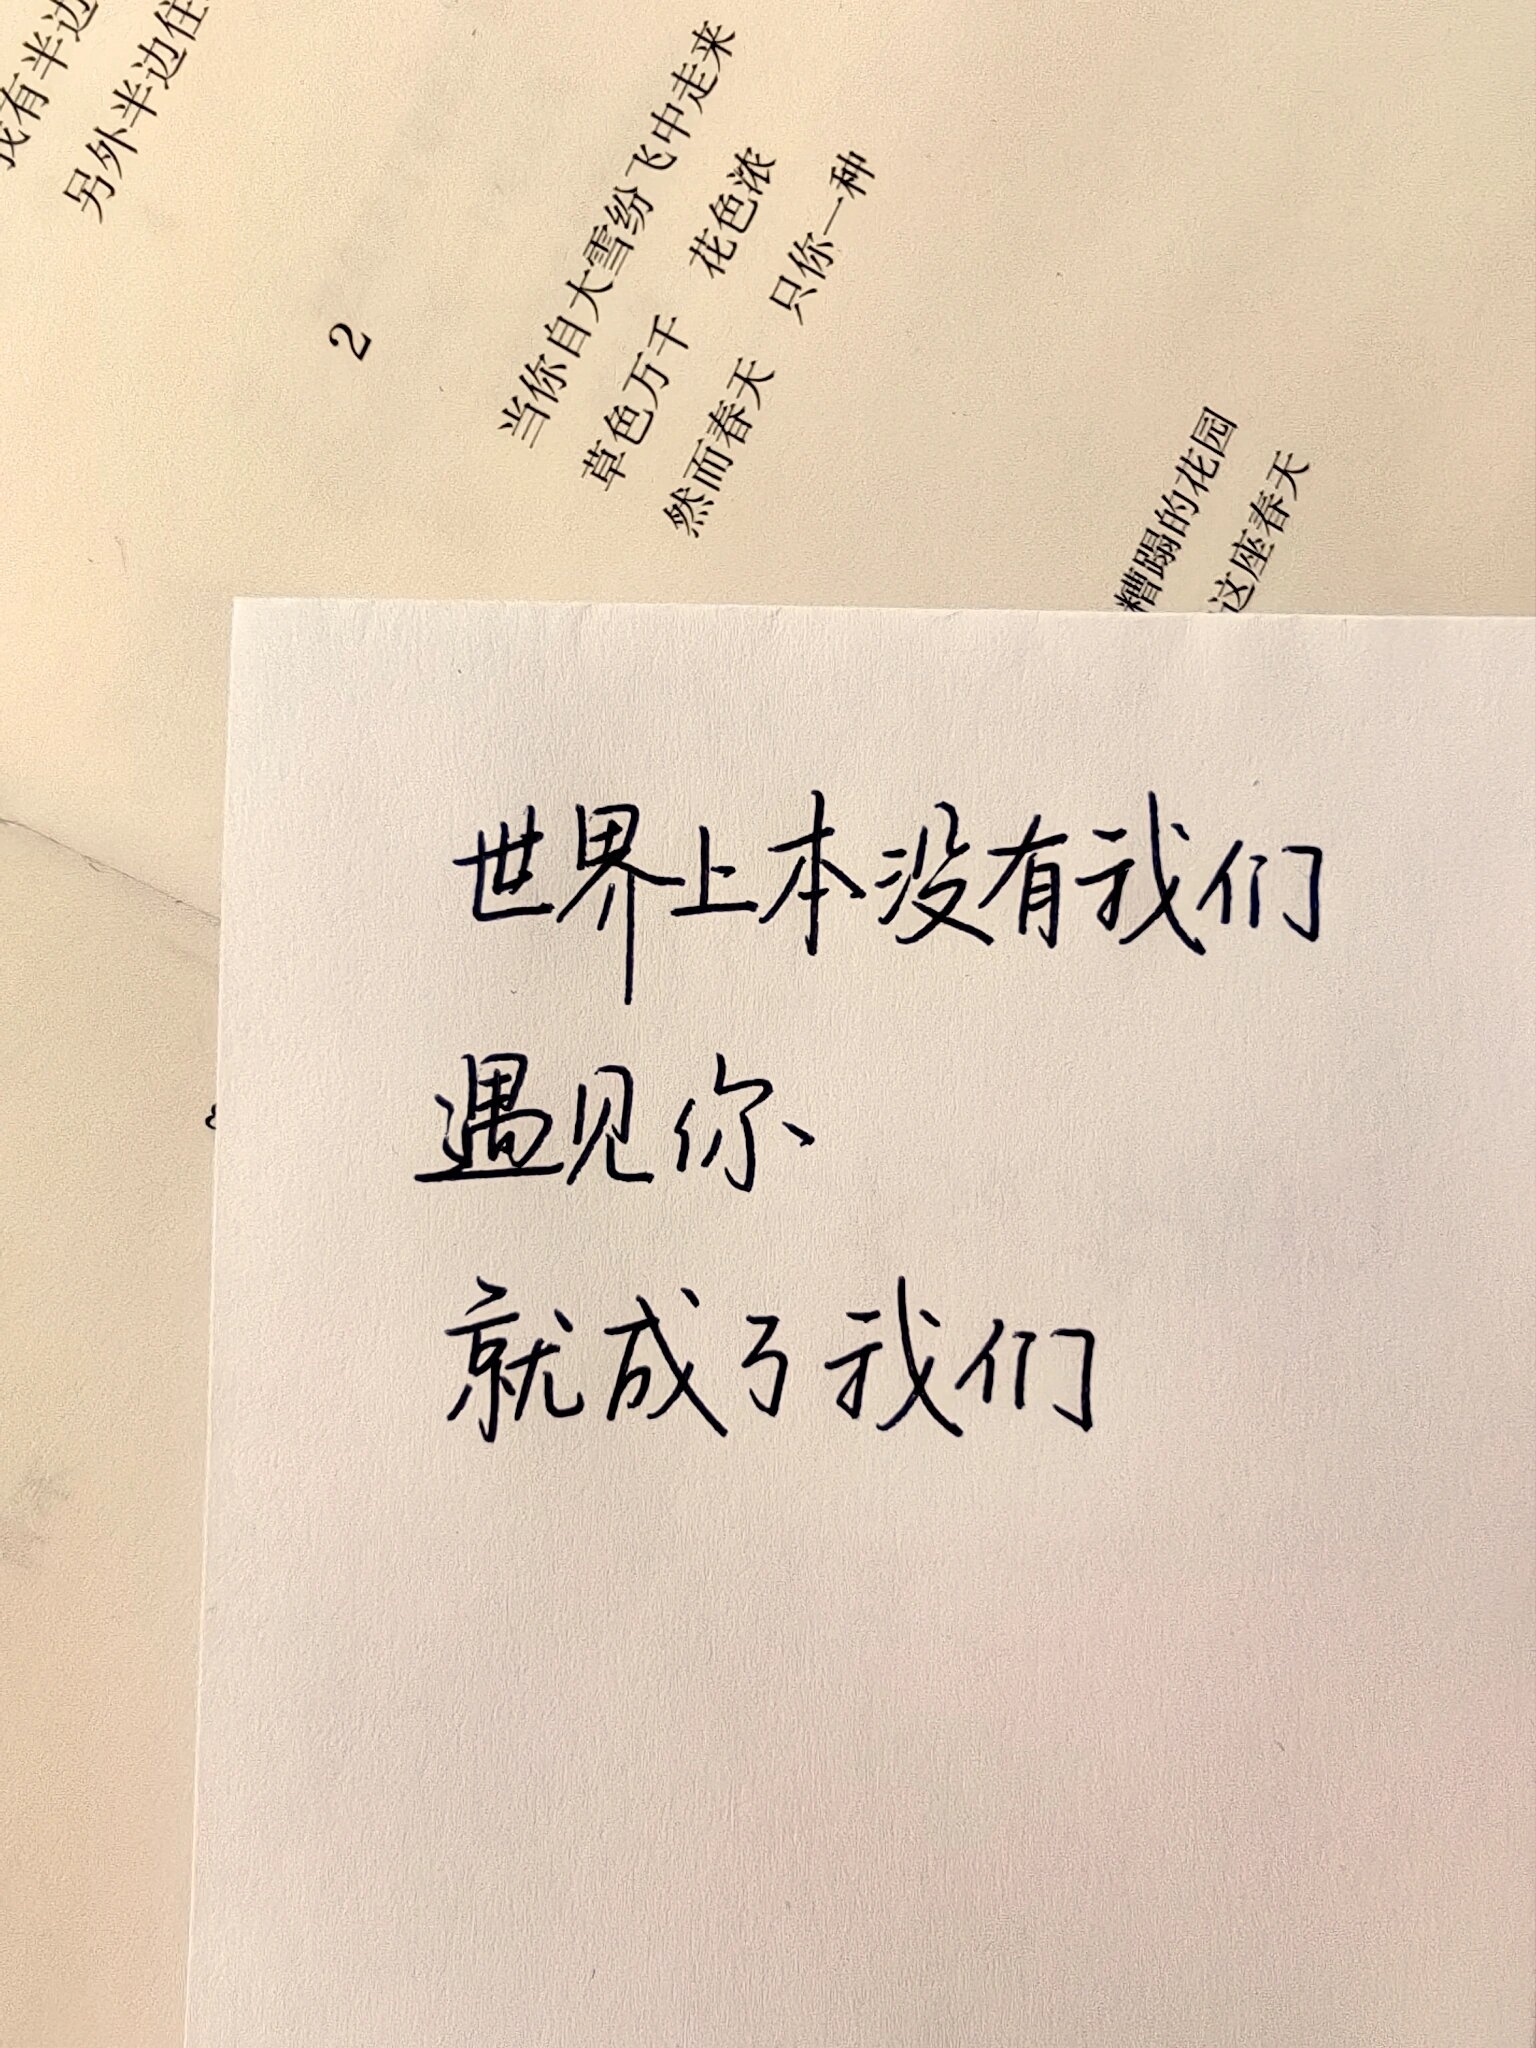 有半边
另外半边住
2
当你自大雪纷飞中走来
草色万千 花色浓
然而春天 只你一种
糟蹋的花园
这座春天
世界上本没有我们
遇见你
就成了我们